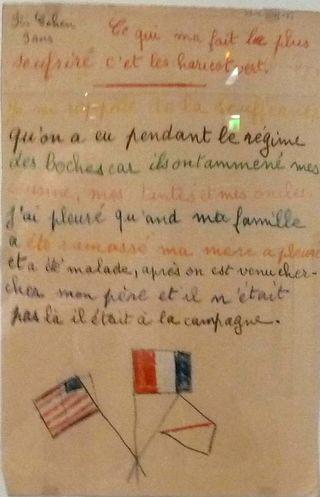 Cohen
9 ans
Ce qui ma fait le plus
soufrire c'et les haricot vert.
de la souffrance
qu'on a eu pendant le régime
des Boches car ils ont ammené mes
cousine, mes tantes et mes oncles.
J'ai pleuré qu'and ma famille
a été ramassé ma mère a pleuré
et a été malade, après on est venu cher-
cher mon père et il n'était
pas là il était à la campagne.